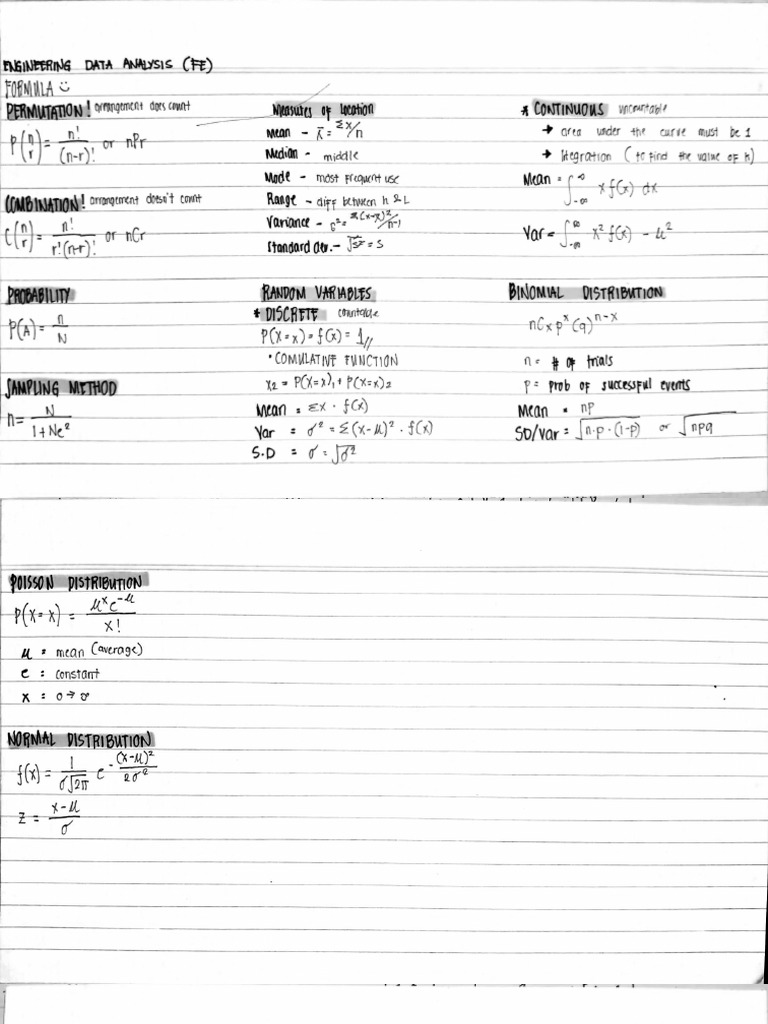 ENGINEERING DATA ANALYSIS (FE)
FORMULA
PERMUTATION! arrangement does count
P(n r) = n!/(n-r)! or nPr
COMBINATION! arrangement doesn't count
C(n r) = n!/r!(n-r)! or nCr
PROBABILITY
P(A) = n/N
SAMPLING METHOD
n = N/1+Ne²
Measures of location
Mean - x̄ = Σx/n
Median - middle
Mode - most frequent use
Range - diff between h & L
Variance - σ² = Σ(x-x̄)²/n-1
Standard dev. - √s² = s
RANDOM VARIABLES
* DISCRETE countable
P(X=x) = f(x) = 1//
• COMULATIVE FUNCTION
x₂ = P(X=x)₁ + P(X=x)₂
Mean = Σx · f(x)
Var = σ² = Σ(x-μ)² · f(x)
S.D = σ = √σ²
* CONTINUOUS uncountable
→ area under the curve must be 1
→ Integration (to find the value of k)
Mean = ∫-∞ ∞ x f(x) dx
Var = ∫-∞ ∞ x² f(x) - μ²
BINOMIAL DISTRIBUTION
nCx pˣ (q)ⁿ⁻ˣ
n = # of trials
p = prob of successful events
Mean = np
SD/Var = √n·p·(1-p) or √npq
POISSON DISTRIBUTION
P(X=x) = μˣe⁻μ/x!
μ = mean (average)
e = constant
x = 0 → ∞
NORMAL DISTRIBUTION
f(x) = 1/σ√2π e -(x-μ)²/2σ²
z = x-μ/σ